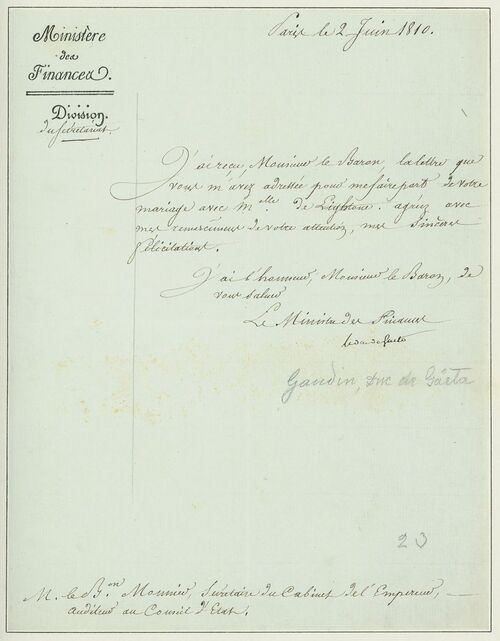 Paris le 2 Juin 1810.
Ministère
des
Finances.
Division
du Secrétariat
J'ai reçu, Monsieur le Baron, la lettre que
vous m'avez adressée pour me faire part de votre
mariage avec Mlle de Lightone. agréez avec
mes remerciemens de votre attention, mes sincères
félicitations.
J'ai l'honneur, Monsieur le Baron, de
vous saluer
Le Ministre des Finances
le duc de Gaete
Gaudin, Duc de Gaëta
23
M. le Bon Mounier, Secrétaire du Cabinet de l'Empereur,
auditeur au Conseil d'Etat.